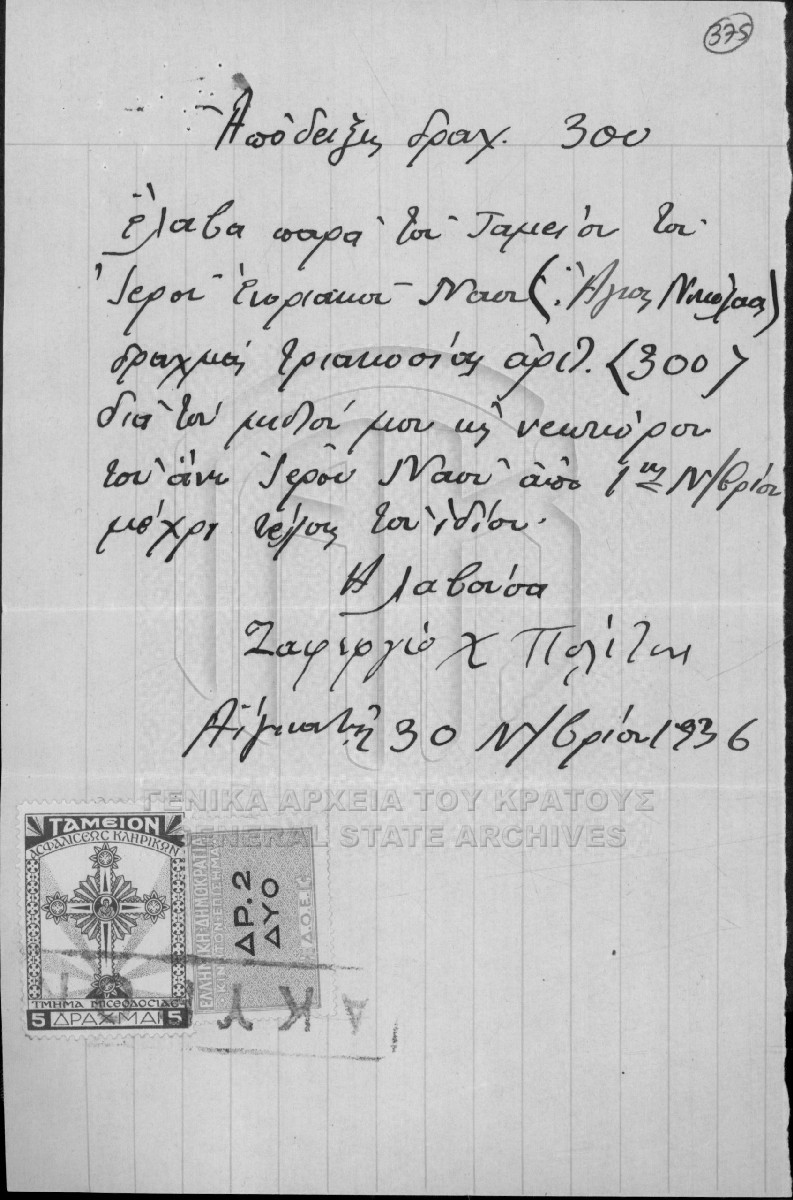 375
Ἀπόδειξις δραχ. 300
Ἔλαβα παρὰ τοῦ Ταμείου του
Ἱεροῦ Ἐνοριακοῦ Ναοῦ (: Ἅγιος Νικόλαος)
δραχμάς τριακοσίας ἀριθ. (300)
διὰ τον μισθόν μου ὡς νεωκόρου
τοῦ ἄνω Ἱεροῦ Ναοῦ ἀπὸ 1ης Ν/βρίου
μέχρι τέλους τοῦ ἰδίου.
Η λαβούσα
Ζαφειργιό Χ Πολίτου
30 Ν/βρίου 1936
ΓΕΝΙΚΑ ΑΡΧΕΙΑ ΤΟΥ ΚΡΑΤΟΥΣ
GENERAL STATE ARCHIVES
ΤΑΜΕΙΟΝ
ΑΣΦΑΛΙΣΕΩΣ ΚΛΗΡΙΚΩΝ
ΤΜΗΜΑ ΜΙΣΘΟΔΟΣΙΑΣ
5 ΔΡΑΧΜΑΙ 5
ΕΛΛΗΝΙΚΗ ΔΗΜΟΚΡΑΤΙΑ
ΚΙΝΗΤΟΝ ΕΠΙΣΗΜΑ
ΔΡ. 2
ΔΥΟ
Δ.Ο.Ε.
ΑΚΥ